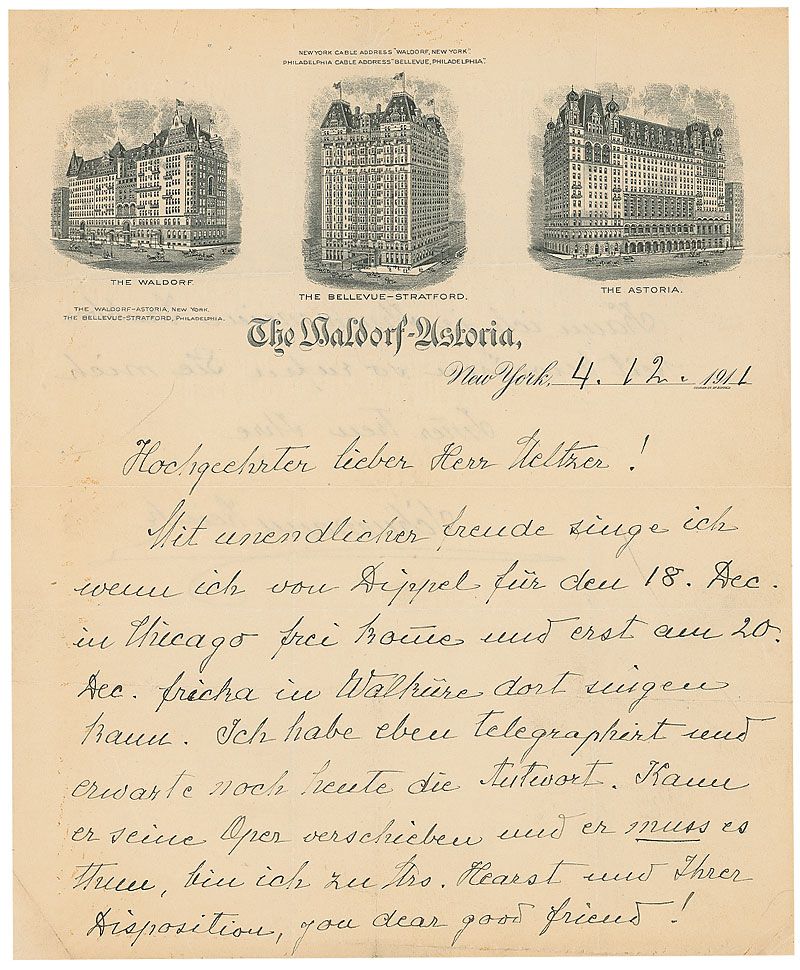 NEW YORK CABLE ADDRESS "WALDORF, NEW YORK".
PHILADELPHIA CABLE ADDRESS "BELLEVUE, PHILADELPHIA".
THE WALDORF.
THE BELLEVUE-STRATFORD.
THE ASTORIA.
THE WALDORF-ASTORIA, NEW YORK.
THE BELLEVUE-STRATFORD, PHILADELPHIA.
The Waldorf-Astoria,
New York, 4. 12. 1911
Hochgeehrter lieber Herr Meltzer!
Mit unendlicher freude singe ich
wenn ich von Dippel für den 18. Dec.
in Chicago frei kom̅e und erst am 20.
Dec. fricka in Walküre dort singen
kann. Ich habe eben telegraphirt und
erwarte noch heute die Antwort. Kann
er seine Oper verschieben und er muss es
thun, bin ich zu Mrs. Hearst und Ihrer
Disposition, you dear good friend!